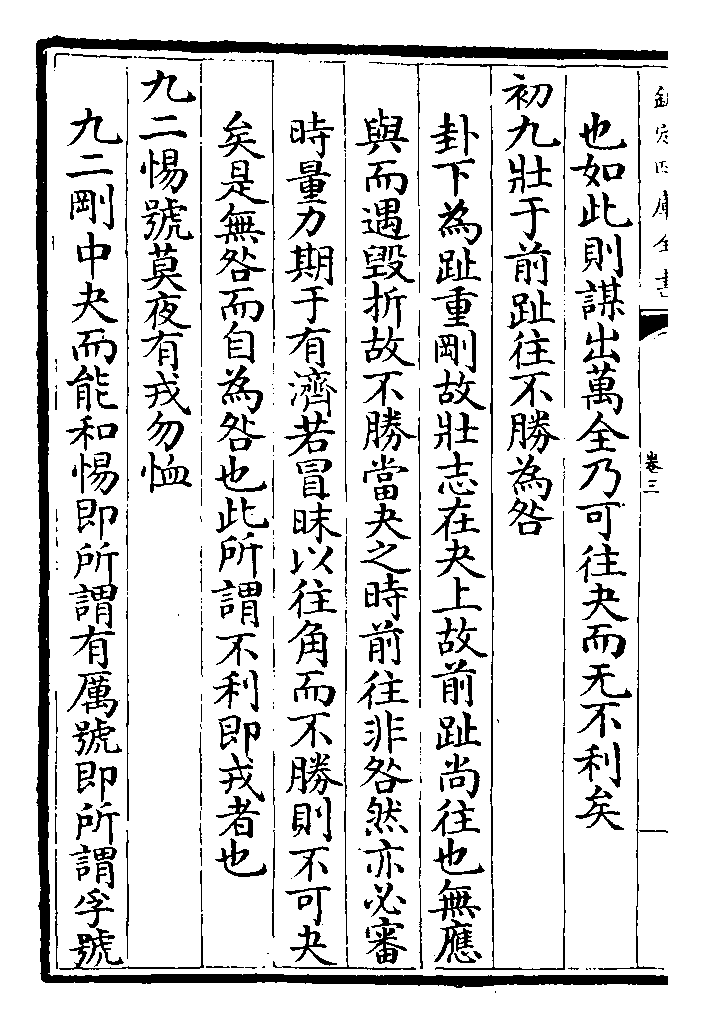 欽定四庫全書
卷三
也如此則謀出萬全乃可往夬而无不利矣
初九壯于前趾往不勝為咎
卦下為趾重剛故壯志在夬上故前趾尚往也無應
與而遇毀折故不勝當夬之時前往非咎然亦必審
時量力期于有濟若冒昧以往角而不勝則不可夬
矣是無咎而自為咎也此所謂不利即戎者也
九二惕號莫夜有戎勿恤
九二剛中夬而能和惕即所謂有厲號即所謂孚號